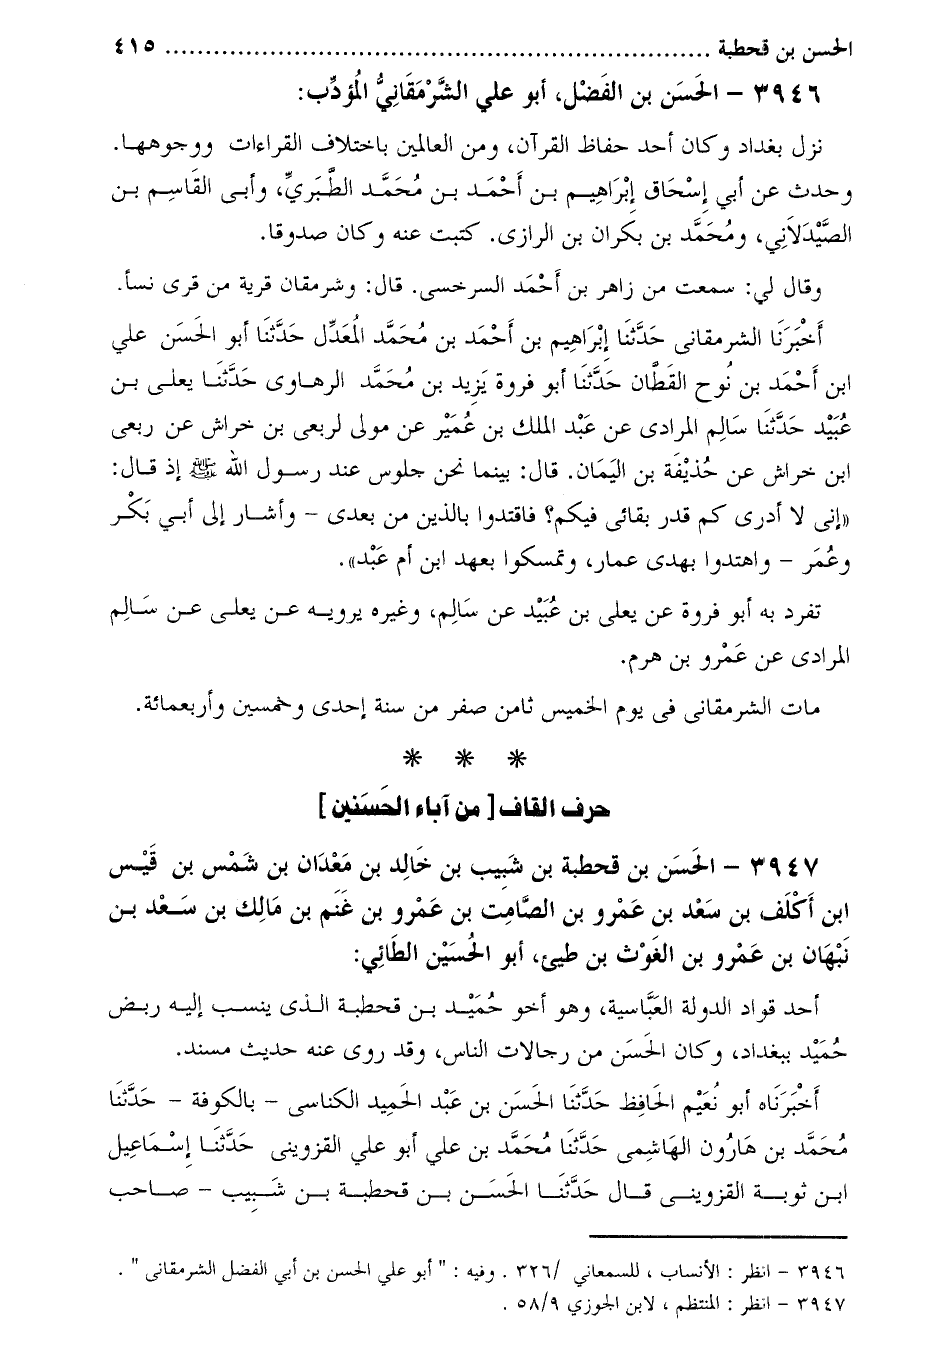 الحسن بن قحطبة ........................................................... ٤١٥
٣٩٤٦ – الحَسَن بن الفَضْل، أبو علي الشَّرْمَقَانِيُّ المُؤدِّب:
نزل بغداد وكان أحد حفاظ القرآن، ومن العالمين باختلاف القراءات ووجوهها.
وحدث عن أبي إِسْحَاق إِبْرَاهِيم بن أَحْمَد بن مُحَمَّد الطَّبَرِيِّ، وأبى القَاسِم بن
الصَّيْدَلاَنِي، ومُحَمَّد بن بكران بن الرازى. كتبت عنه وكان صدوقا.
وقال لي: سمعت من زاهر بن أَحْمَد السرخسى. قال: وشرمقان قرية من قرى نسأ.
أَخْبَرَنَا الشرمقانى حَدَّثَنَا إِبْرَاهِيم بن أَحْمَد بن مُحَمَّد المُعَدِّل حَدَّثَنَا أبو الحَسَن علي
ابن أَحْمَد بن نُوح القَطَّان حَدَّثَنَا أبو فروة يَزِيد بن مُحَمَّد الرهاوى حَدَّثَنَا يعلى بن
عُبَيْد حَدَّثَنَا سَالِم المرادى عن عَبْد الملك بن عُمَيْر عن مولى لربعى بن خراش عن ربعى
ابن خراش عن حُذَيْفَة بن اليَمَان. قال: بينما نحن جلوس عند رسول الله ﷺ إذ قال:
«إنى لا أدرى كم قدر بقائى فيكم؟ فاقتدوا بالذين من بعدى – وأشار إلى أبي بَكْر
وعُمَر – واهتدوا بهدى عمار، وتمسكوا بعهد ابن أم عَبْد».
تفرد به أبو فروة عن يعلى بن عُبَيْد عن سَالِم، وغيره يرويه عن يعلى عن سَالِم
المرادى عن عَمْرو بن هرم.
مات الشرمقانى فى يوم الخميس ثامن صفر من سنة إحدى وخمسين وأربعمائة.
* * *
حرف القاف [ من آباء الحَسَنين ]
٣٩٤٧ – الحَسَن بن قحطبة بن شَبِيب بن خَالِد بن مَعْدَان بن شَمْس بن قَيْس
ابن أَكْلَف بن سَعْد بن عَمْرو بن الصَّامِت بن عَمْرو بن غَنَم بن مَالِك بن سَعْد بن
نَبْهَان بن عَمْرو بن الغَوْث بن طيئ، أبو الحُسَيْن الطَّائِي:
أحد قواد الدولة العَبَّاسية، وهو أخو حُمَيْد بن قحطبة الذى ينسب إليه ربض
حُمَيْد ببغداد، وكان الحَسَن من رجالات الناس، وقد روى عنه حديث مسند.
أَخْبَرَنَاه أبو نُعَيْم الحَافِظ حَدَّثَنَا الحَسَن بن عَبْد الحَمِيد الكناسى – بالكوفة – حَدَّثَنَا
مُحَمَّد بن هَارُون الهَاشِمى حَدَّثَنَا مُحَمَّد بن علي أبو علي القزوينى حَدَّثَنَا إِسْمَاعِيل
ابن ثوبة القزوينى قال حَدَّثَنَا الحَسَن بن قحطبة بن شَبِيب – صاحب
٣٩٤٦ – انظر : الأنساب ، للسمعاني /٣٢٦ . وفيه : " أبو علي الحسن بن أبي الفضل الشرمقانى " .
٣٩٤٧ – انظر : المنتظم ، لابن الجوزي ٥٨/٩ .